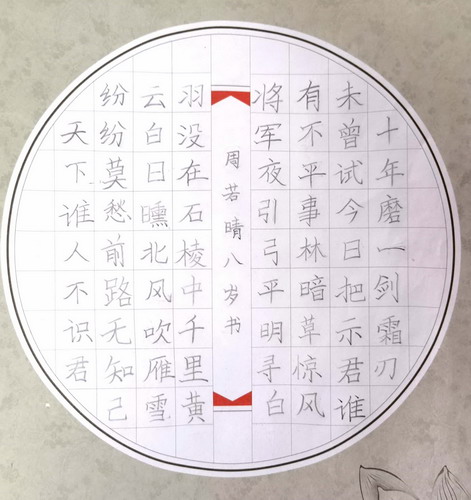 十年磨一剑霜刃
未曾试今日把示君谁
有不平事林暗草惊风
将军夜引弓平明寻白
羽没在石棱中千里黄
云白日曛北风吹雁雪
纷纷莫愁前路无知己
天下谁人不识君
周若晴八岁书